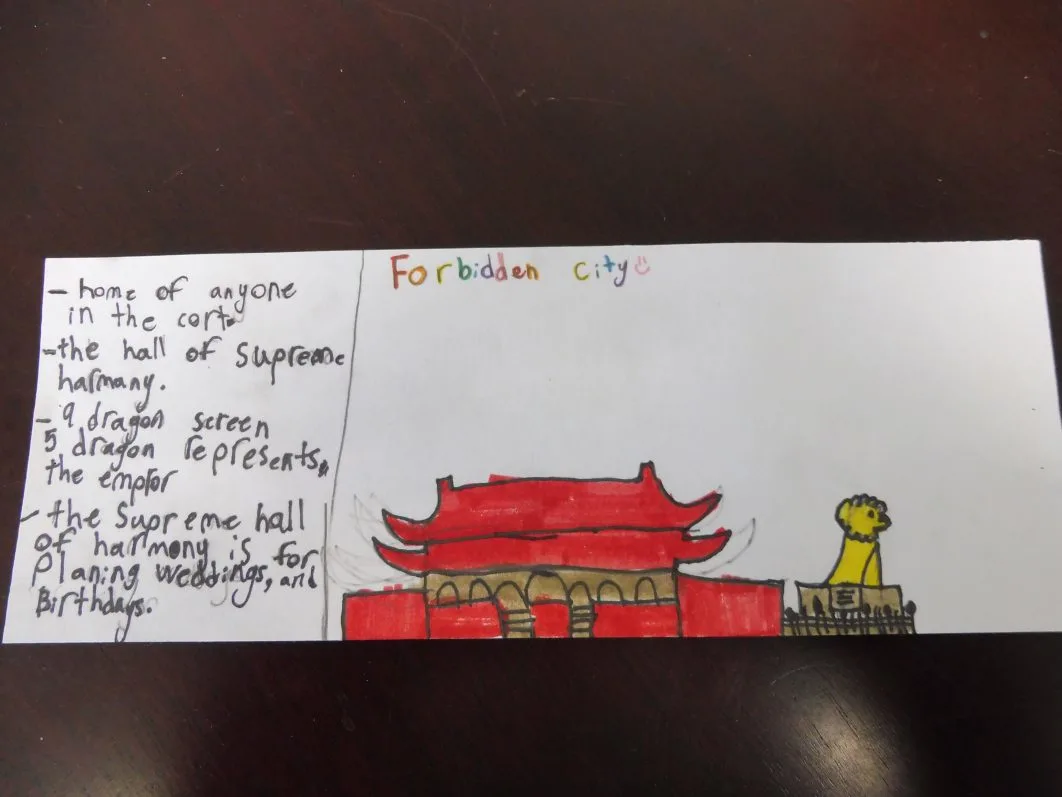 - home of anyone
in the cort.
- the hall of Supreme
harmany.
- 9 dragon screen
5 dragon represents,
the empror
- the Supreme hall
of harmony is for
Planing weddings, and
Birthdays.
Forbidden City